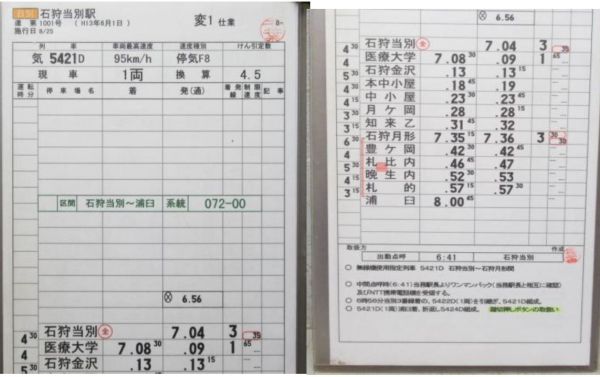 石狩当別駅
変1仕業
達 第 1001号 （H13年6月1日）
施行日 8/25
列 車 車両最高速度 速度種別 けん引定数
気 5421D 95km/h 停気F8
現 車 1両 換 算 4.5
運転時分 停車場名 着 発(通) 着発線 制限速度 記事
区間 石狩当別～浦臼 系統 072-00
6.56
石狩当別 全 7.04 3 35
4 30 医療大学 7.08 30 .09 1 65
石狩金沢 .13 .13 15
6.56
石狩当別 全 7.04 3 35
4 30 医療大学 7.08 30 .09 1 65
石狩金沢 .13 .13 15
本中小屋 .18 .19
中小屋 .23 30 .23 45
月ケ岡 .28 .28 15
知来乙 .31 45 .32
石狩月形 7.35 15 7.36 3
豊ケ岡 .42 30 .42 45
札比内 .46 45 .47
晩生内 .52 30 .53
札的 .57 15 .57 30
浦臼 8.00 45
取扱方 作成
出勤点呼 6:41 石狩当別
○ 無線機使用指定列車 5421D 石狩当別～石狩月形間
○ 中間点呼時(6:41)当務駅長よりワンマンバック(当務駅長と相互に確認)
及びNTT携帯電話機を受領する。
○ 6時56分当別3番線着の、5422D(1両)を引継ぎ、5421D組成。
○ 5421D(1両)浦臼着、折返し5424D組成。 締切押しボタンの取扱い